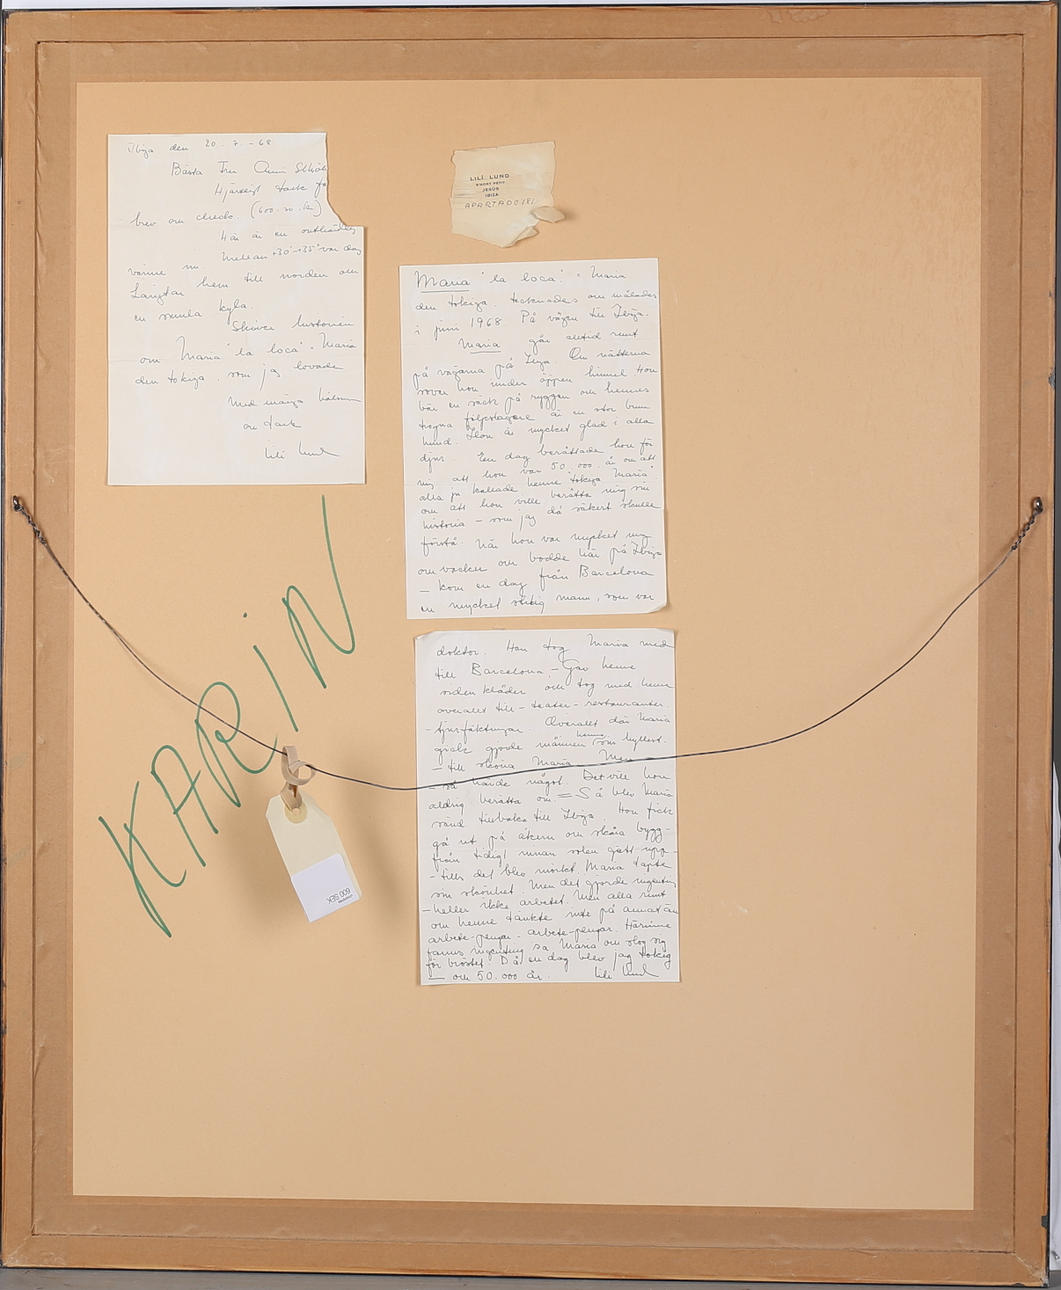 Ibiza den 20-7-68
Bästa Fru
Hjärtligt tack
brev om check. (600.
Här är en outhärdlig
värme nu. Mellan +30°-+35° var dag
Längtar hem till norden och
en svala kyla.
Skriver historien
om Maria "la loca". Maria
den tokiga. som jag lovade
Med många hälsn
och tack
Lili Lund
LILÍ LUND
JESÚS
IBIZA
APARTADO 181
Maria "la loca". Maria
den tokiga. tecknades och målades
i juni 1968. På vägen till Ibiza.
Maria går alltid runt
på vägarna på Ibiza. Om nätterna
sover hon under öppen himmel. Hon
bär en säck på ryggen och hennes
trogna följeslagare är en stor brun
hund. Hon är mycket glad i alla
djur. En dag berättade hon för
mig att hon var 50.000 år och att
alla ju kallade henne "tokiga Maria"
och att hon ville berätta mig sin
historia – som jag då säkert skulle
förstå. När hon var mycket ung
och vacker och bodde här på Ibiza
– kom en dag från Barcelona
en mycket rik mann, som var
doktor. Han tog Maria med
till Barcelona. – Gav henne
siden kläder och tog med henne
överallt till – teater – restauranter.
– tjurfäktningar. Överallt där Maria
gick gjorde männen henne som hyllest.
– till sköna Maria. Men
– så hände något. Det vill hon
aldrig berätta om. = Så blev Maria
sänd tillbaka till Ibiza. Hon fick
gå ut på åkern och skära bygg-
från tidigt innan solen gått upp-
– tills det blev mörkt. Maria tapte
sin skönhet. Men det gjorde ingenting
– heller ikke arbetet. Men alla runt
om henne tänkte inte på annat än
arbete-pengar – arbete-pengar. Härinne
fanns ingenting sa Maria och slog sig
för bröstet. Då en dag blev jag tokig
– och 50.000 år. Lili Lund
KARIN
600 SEK